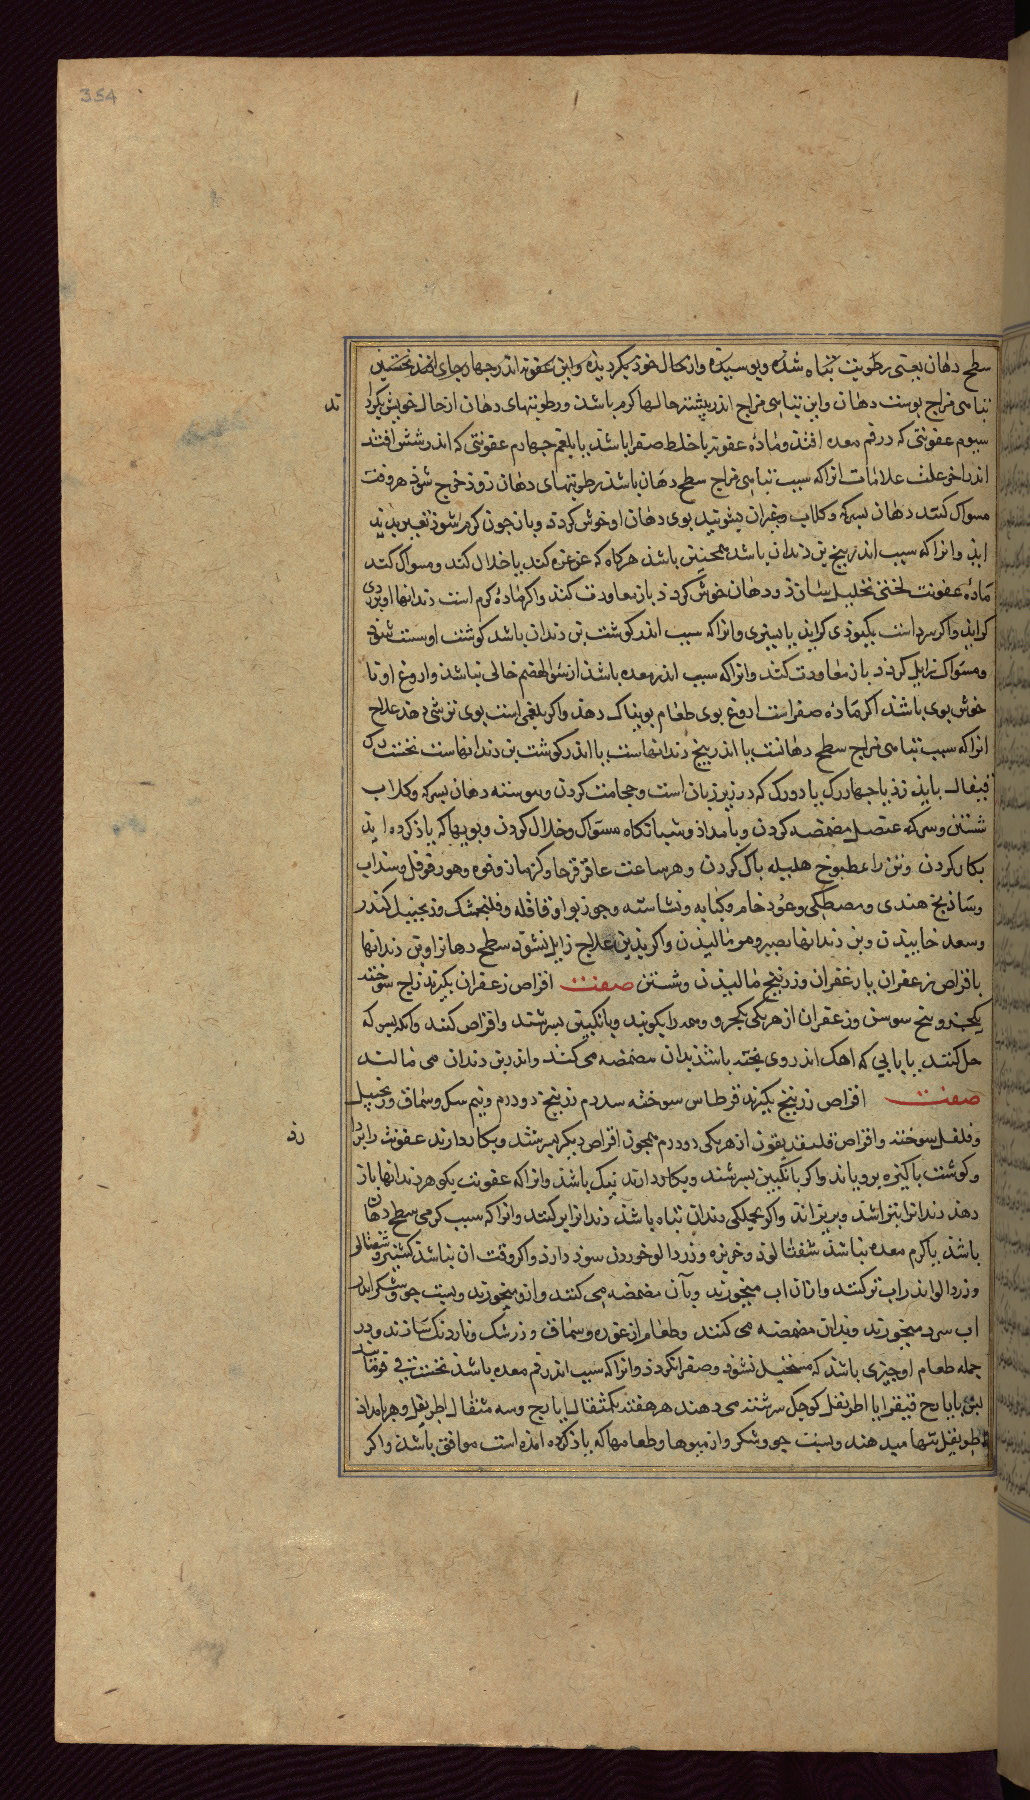 354
سطح دهان یعنی رطوبت تباه شده و پوسیده و از حال خود بگردیده و این عفونة اندر چهار جای افتد نخستین
تباهی مزاج پوست دهان و این تباهی مزاج اندر بیشتر حالها گرم باشد و رطوبتهای دهان از حال خویش بگرداند
سیوم عفونتی که در فم معده افتد و ماده عفونة یا خلط صفرا باشد یا بلغم چهارم عفونتی که اندر شش افتد
اندر اخر علت علامات انرا که سبب تباهی مزاج سطح دهان باشد رطوبتهای دهان زود خرج شوذ هر وقت
مسواک کنند دهان بسرکه و کلاب و غیران بشویند بوی دهان او خوش کردد و باز چون کرم شوذ تغییر پدید
اید و انرا که سبب اندر بیخ بن دندان باشد همچنین باشد هرکاه که غرغره کند یا خلال کند و مسواک کند
ماده عفونت لختی تحلیل ستاند و دهان خوش کردد باز معاودت کند و اکر ماده کرم است دندانها او بزردی
کراید و اکر سرد است بکبوذی کراید یا بسبزی و انرا که سبب اندر کوشت بن دندان باشد کوشت او سست شود
و مسواک زایل کردد باز معاودت کند و انرا که سبب اندر معده باشد از سوء الهضم خالی نباشد و اروغ او نا
خوش بوی باشد اکر ماده صفراست اروغ بوی طعام بویناک دهد و اکر بلغمی است بوی ترشی دهد علاج
انرا که سبب تباهی مزاج سطح دهانست یا اندر بیخ دندانهاست یا اندر کوشت بن دندانهاست نخست رک
قیفال باید زد یا چهار رک یا دو رک که در زیر زبان است و حجامت کردن و پیوسته دهان بسرکه و کلاب
شستن و سرکه عنصل مضمضه کردن و بامداد و شبانکاه مسواک و خلال کردن و بویها که یاذ کرده اید
بکار کردن و تن را بمطبوخ هلیله پاک کردن و هر ساعت عاقرقرحا و کزمازو و فوه و هو و قوفل و سنداب
و ساذج هندی و مصطکی و عود خام و کبابه و نشاسته و جوز بوا و قاقله و فلنجمشک و زنجبیل کندر
و سعد خاییدن و بن دندانها بصبر و مر مالیدن و اکر بدین علاج زایل نشود سطح دهانرا و بن دندانها
باقراص زعفران یا زعفران و زرنیخ مالیدن و شستن صفت اقراص زعفران بکیرند زاج سوخته
یکجزو بیخ سوسن و زعفران از هر یکی یکجزو و همه را بکوبند و بانکبین بسرشند و اقراص کنند و انکه بسرکه
حل کنند یا بآبی که اهک اندر وی پخته باشد بدان مضمضه می کنند و اندر بن دندان می مالند
صفت اقراص زرنیخ بکیرند قرطاس سوخته سه درم زرنیخ دو درم و نیم سک و سماق و زنجبیل
و فلفل سوخته و اقراص قلقدیقون از هر یکی دو درم همچون اقراص دیکر بسرشند و بکار دارند عفونت را ببرد
و کوشت پاکیزه برویاند و اکر بانکبین بسرشند و بکار دارند نیک باشد و انرا که عفونت بکوهر دندانها باز
دهد دندانرا بتراشد و بریزاند و اکر بجملکی دندان تباه باشد دندانرا بر کنند و انرا که سبب کرمی سطح دهان
باشد یا کرم معده بباشد شفتالوذ و خربزه و زردالو خوردن سود دارد و اکر وقت ان نباشد کشنیز و شفتالو
و زردالو اندر اب تر کنند و ازان اب میخورند و بآن مضمضه می کنند و ازو میخورند و پست جو و شکر اندر
اب سرد میخورند و بدان مضمضه می کنند و طعام از غوره و سماق و زرشک و ناردنک سازند و در
جمله طعام او چیزی باشد که مستحیل نشود و صفرا نکردد و انرا که سبب اندر فم معده باشد نخست قی فرمایند
پس بایارج فیقرا یا اطریفل کوچک سرشته می دهند هر هفته یکمثقال ایارج و سه مثقال اطریفل و هر بامداد
اطریفل تنها میدهند و پست جو و شکر و از میوها و طعامها که یاذ کرده امده است موافق باشد و اکر